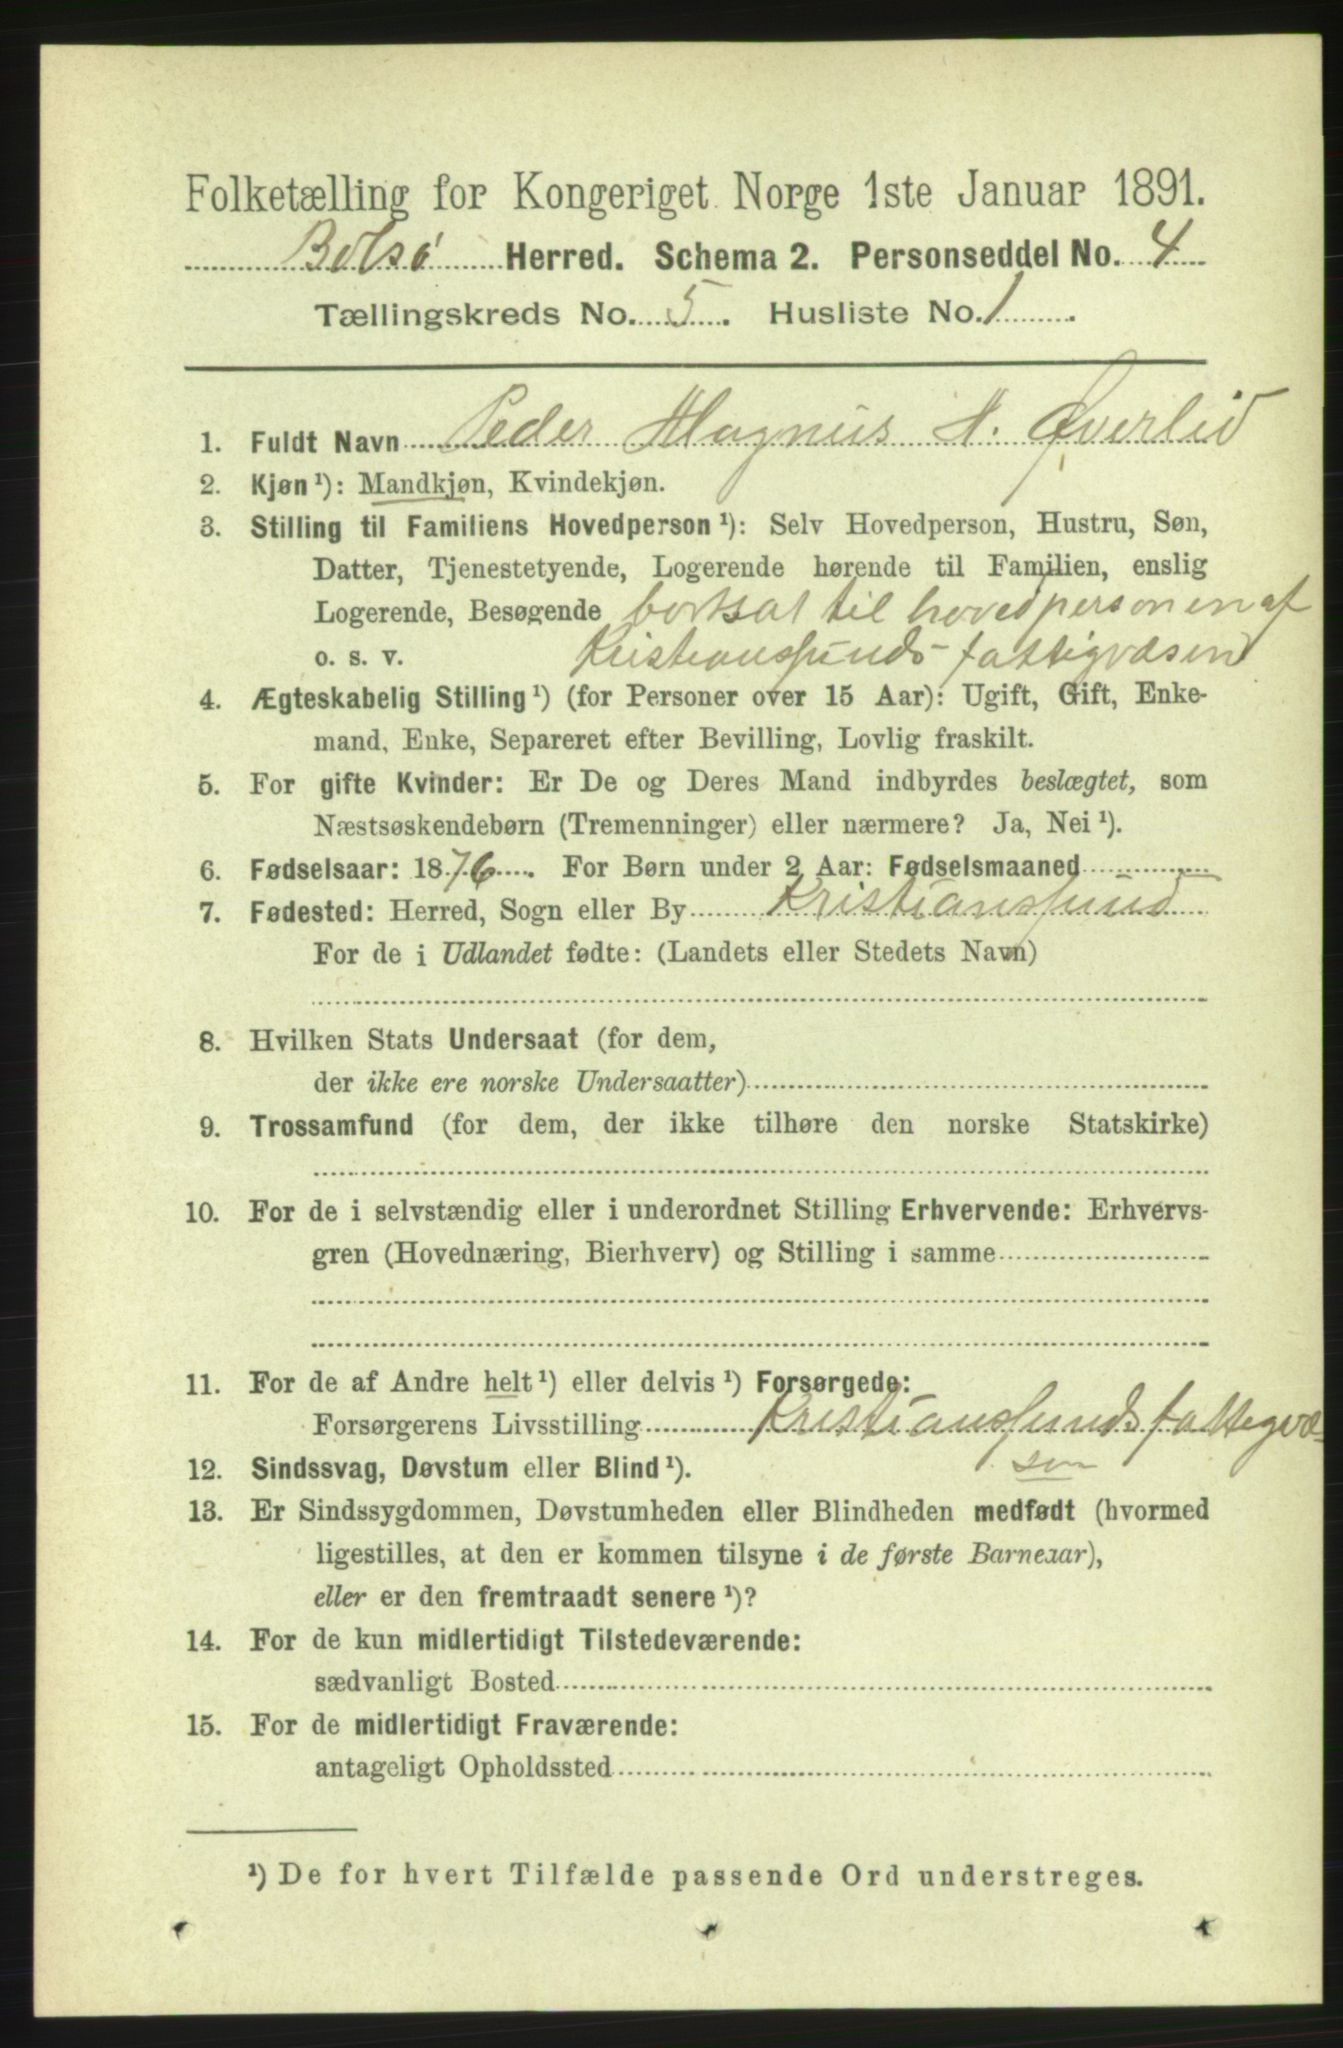 Folketælling for Kongeriget Norge 1ste Januar 1891.
Bolsø Herred. Schema 2. Personseddel No. 4
Tællingskreds No. 5. Husliste No. 1
1. Fuldt Navn Peder Magnus N. Øverlid
2. Kjøn ¹): Mandkjøn, Kvindekjøn.
3. Stilling til Familiens Hovedperson ¹): Selv Hovedperson, Hustru, Søn,
Datter, Tjenestetyende, Logerende hørende til Familien, enslig
Logerende, Besøgende bortsat til hovedpersonen af
o. s. v. Kristianssunds fattigvæsen
4. Ægteskabelig Stilling ¹) (for Personer over 15 Aar): Ugift, Gift, Enke-
mand, Enke, Separeret efter Bevilling, Lovlig fraskilt.
5. For gifte Kvinder: Er De og Deres Mand indbyrdes beslægtet, som
Næstsøskendebørn (Tremenninger) eller nærmere? Ja, Nei ¹).
6. Fødselsaar: 1876. For Børn under 2 Aar: Fødselsmaaned
7. Fødested: Herred, Sogn eller By Kristianssund
For de i Udlandet fødte: (Landets eller Stedets Navn)
8. Hvilken Stats Undersaat (for dem,
der ikke ere norske Undersaatter)
9. Trossamfund (for dem, der ikke tilhøre den norske Statskirke)
10. For de i selvstændig eller i underordnet Stilling Erhvervende: Erhvervs-
gren (Hovednæring, Bierhverv) og Stilling i samme
11. For de af Andre helt ¹) eller delvis ¹) Forsørgede:
Forsørgerens Livsstilling Kristianssunds fattigvæ-
12. Sindssvag, Døvstum eller Blind ¹). sen
13. Er Sindssygdommen, Døvstumheden eller Blindheden medfødt (hvormed
ligestilles, at den er kommen tilsyne i de første Barneaar),
eller er den fremtraadt senere ¹)?
14. For de kun midlertidigt Tilstedeværende:
sædvanligt Bosted
15. For de midlertidigt Fraværende:
antageligt Opholdssted
¹) De for hvert Tilfælde passende Ord understreges.